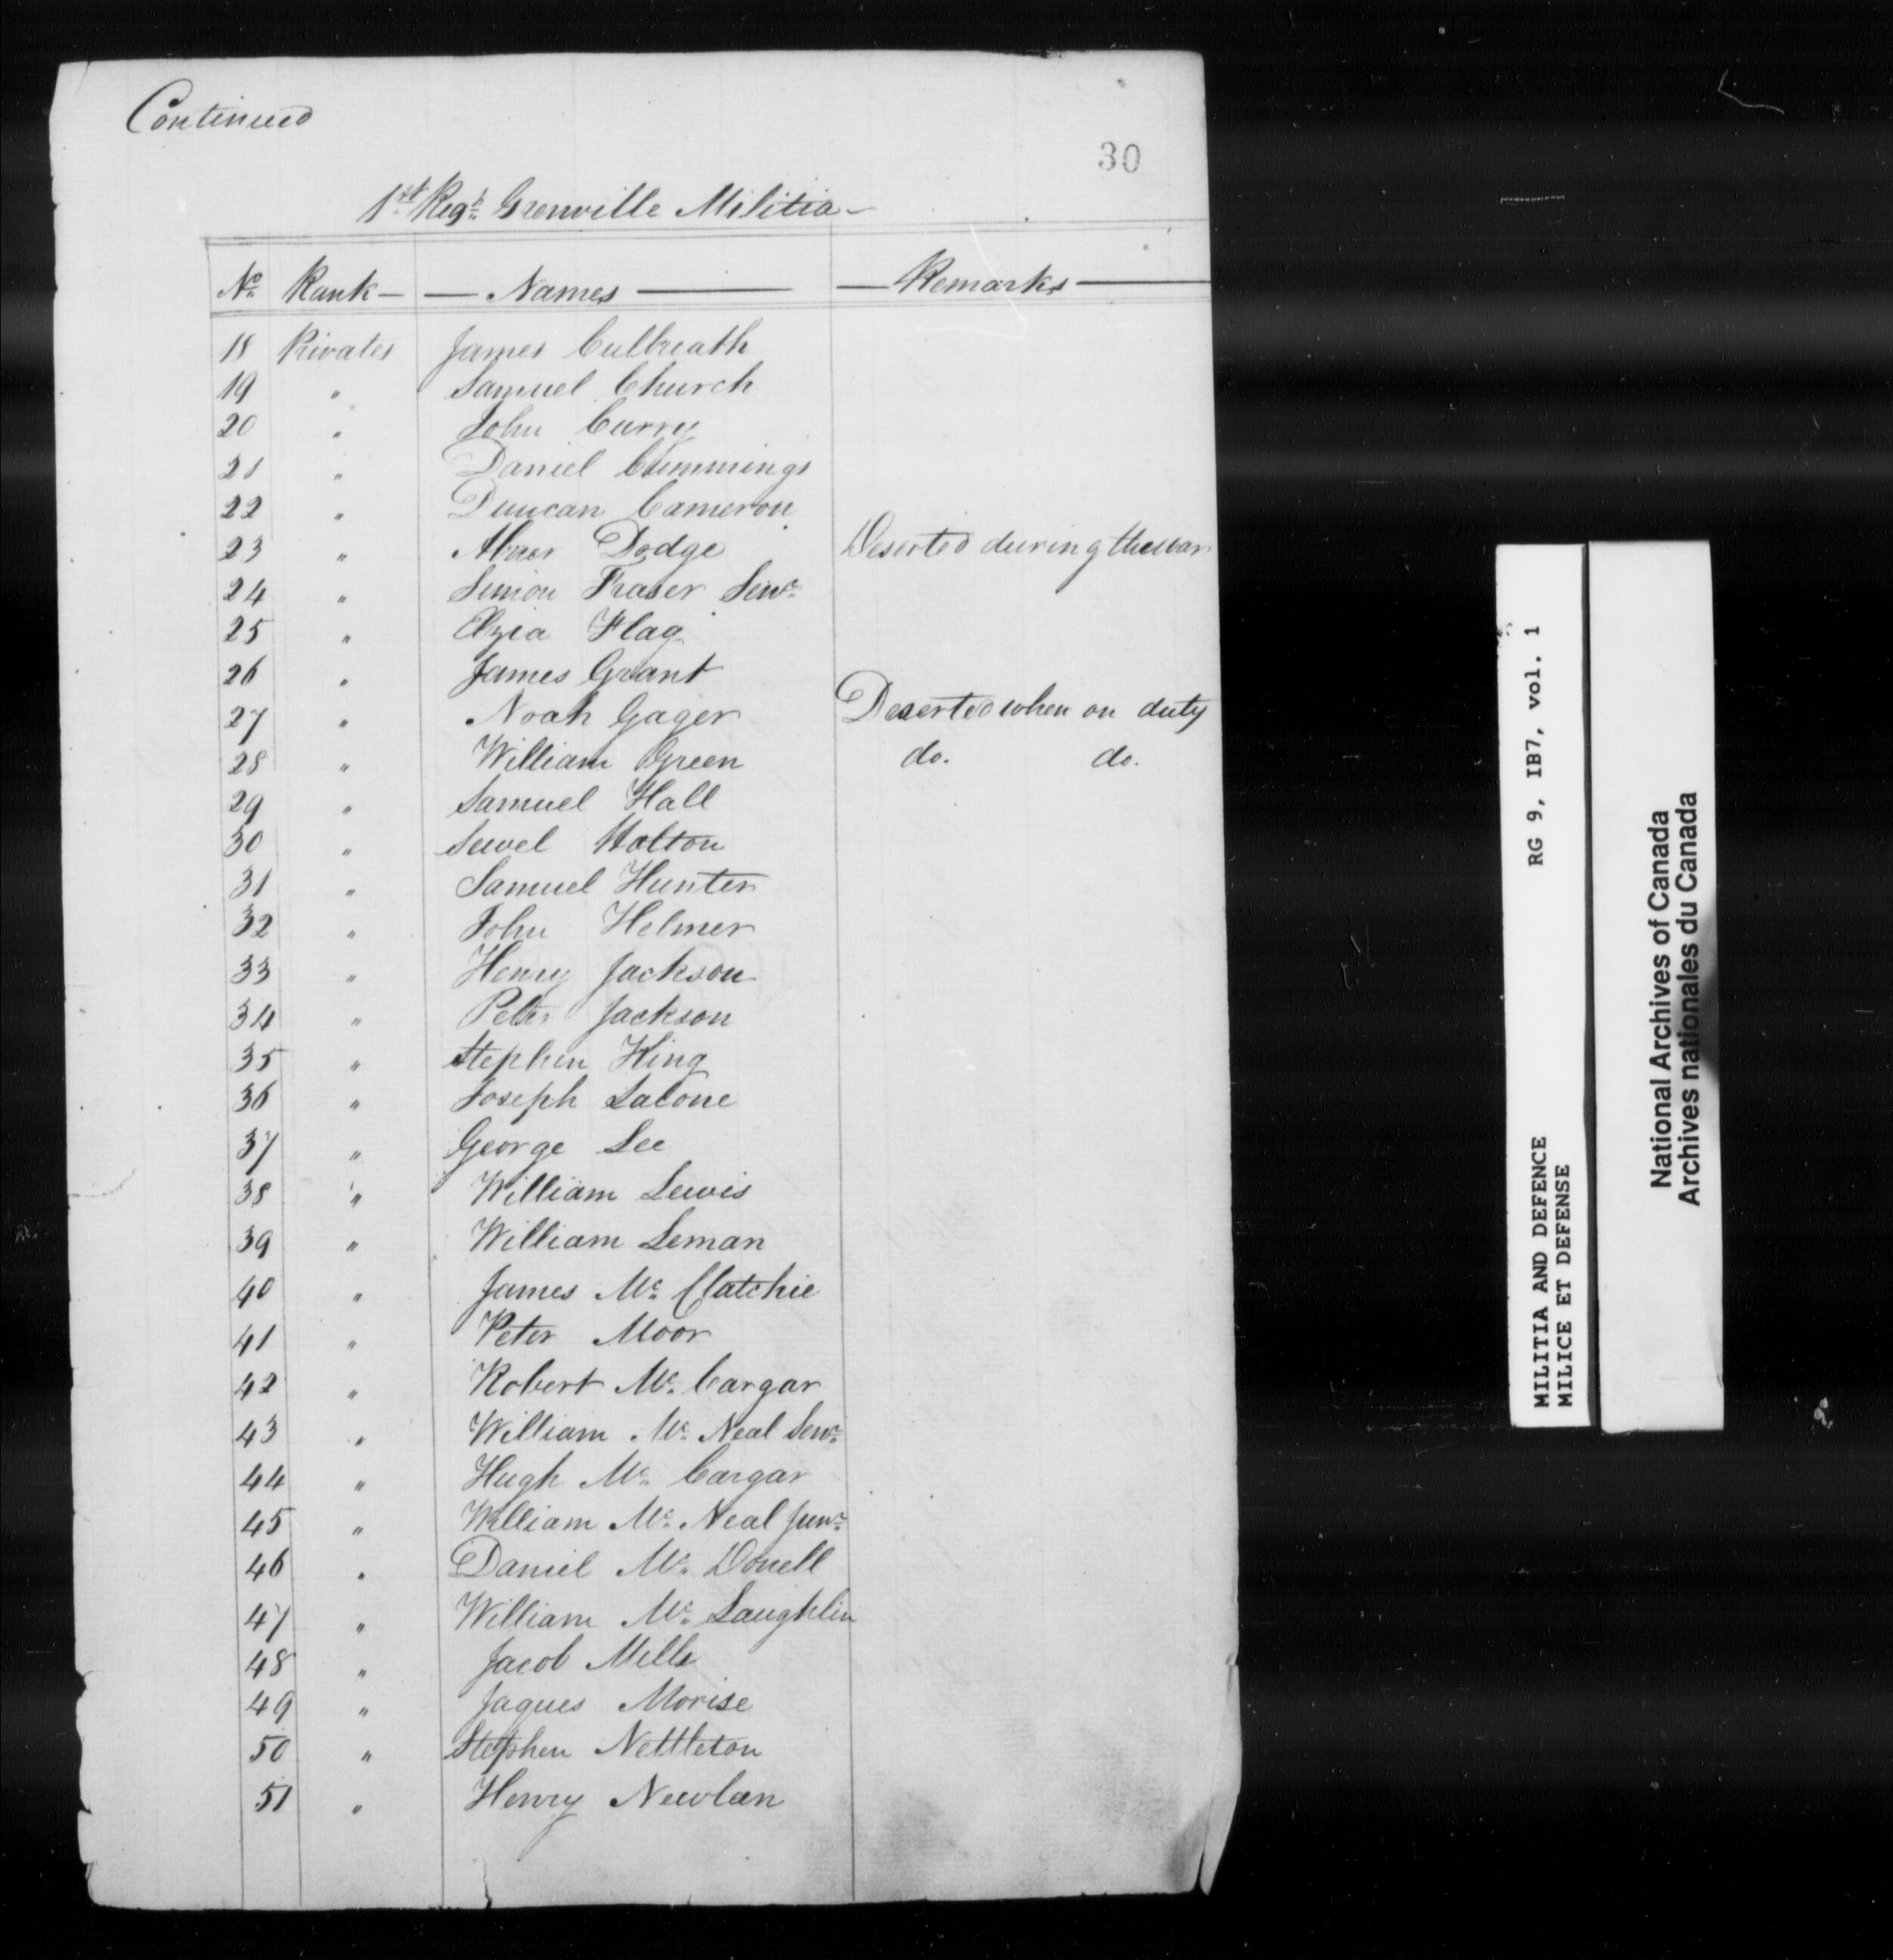 Continued
30
1st Regt Grenville Militia
No Rank Names Remarks
18 Privates James Culbreath
19 " Samuel Church
20 " John Curry
21 " Daniel Cummings
22 " Duncan Cameron
23 " Abner Dodge Deserted during the war
24 " Simon Fraser Senr
25 " Flag
26 " James Grant
27 " Noah Gager Deserted when on duty
28 " William Green do. do.
29 " Samuel Hall
30 " Sewel Halton
31 " Samuel Hunter
32 " John Helmer
33 " Henry Jackson
34 " Peter Jackson
35 " Stephen King
36 " Joseph Lacone
37 " George Lee
38 " William Lewis
39 " William Leman
40 " James Mc Clatchie
41 " Peter Moor
42 " Robert Mc Cargar
43 " William Mc Neal Senr
44 " Hugh Mc Cargar
45 " William Mc Neal Junr
46 " Daniel Mc Donell
47 " William Mc Laughlin
48 " Jacob Mills
49 " Jaques Morise
50 " Stephen Nettleton
51 " Henry Newlan
MILITIA AND DEFENCE RG 9, IB7, vol. 1
MILICE ET DEFENSE
National Archives of Canada
Archives nationales du Canada